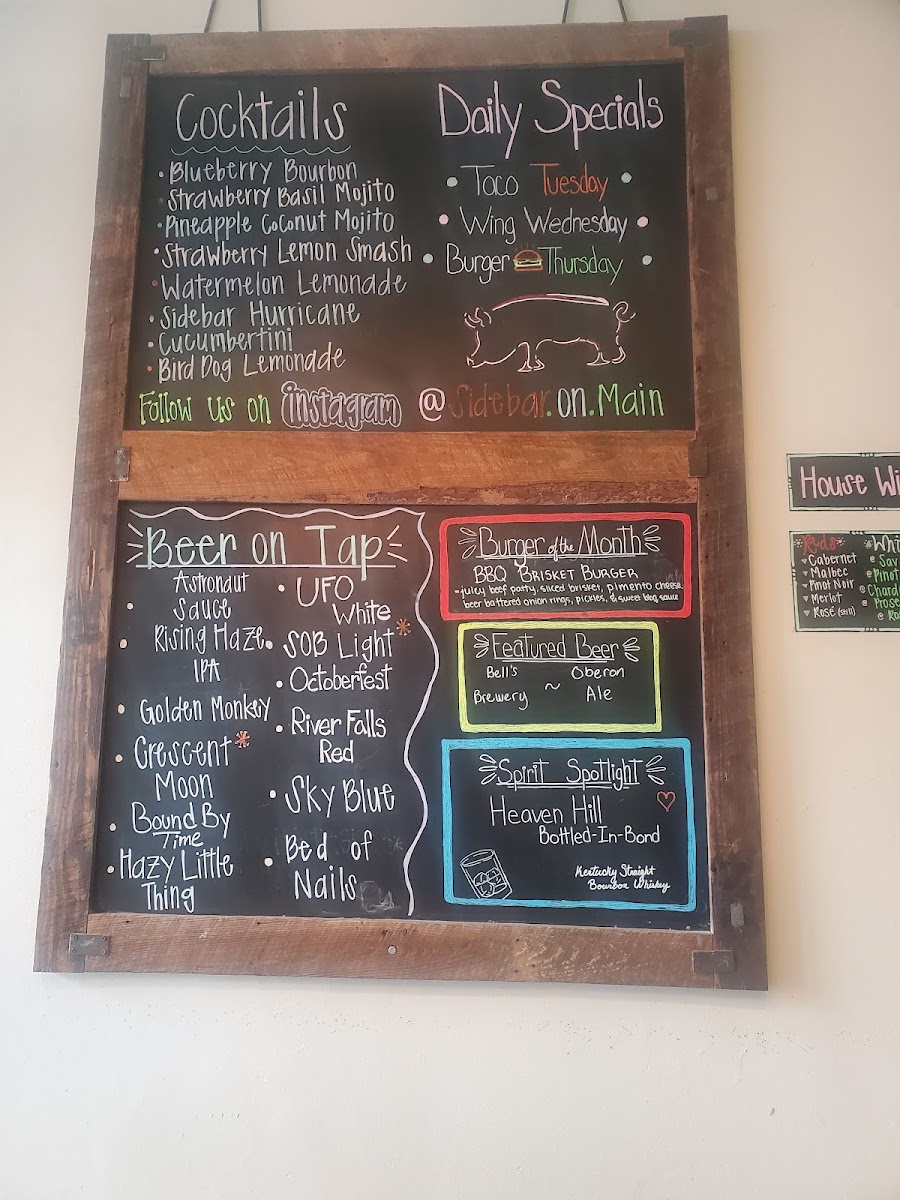 Cocktails
• Blueberry Bourbon
• Strawberry Basil Mojito
• Pineapple Coconut Mojito
• Strawberry Lemon Smash
• Watermelon Lemonade
• Sidebar Hurricane
• Cucumbertini
• Bird Dog Lemonade
Daily Specials
• Taco Tuesday •
• Wing Wednesday •
• Burger Thursday •
Follow us on Instagram @sidebar.on.Main
Beer on Tap
• Astronaut
Sauce
• Rising Haze
IPA
• Golden Monkey
• Crescent*
Moon
• Bound By
Time
• Hazy Little
Thing
• UFO
White
• SOB Light*
• Octoberfest
• River Falls
Red
• Sky Blue
• Bed of
Nails
Burger of the Month
BBQ Brisket Burger
- juicy beef patty, sliced brisket, pimento cheese,
beer battered onion rings, pickles, & sweet bbq sauce
Featured Beer
Bell's Oberon
Brewery ~ Ale
Spirit Spotlight
Heaven Hill
Bottled-In-Bond
Kentucky Straight
Bourbon Whiskey
House Wi
Reds
Cabernet
Malbec
Pinot Noir
Merlot
Rosé (still)
Whi
Sav
Pinot
Chard
Prose